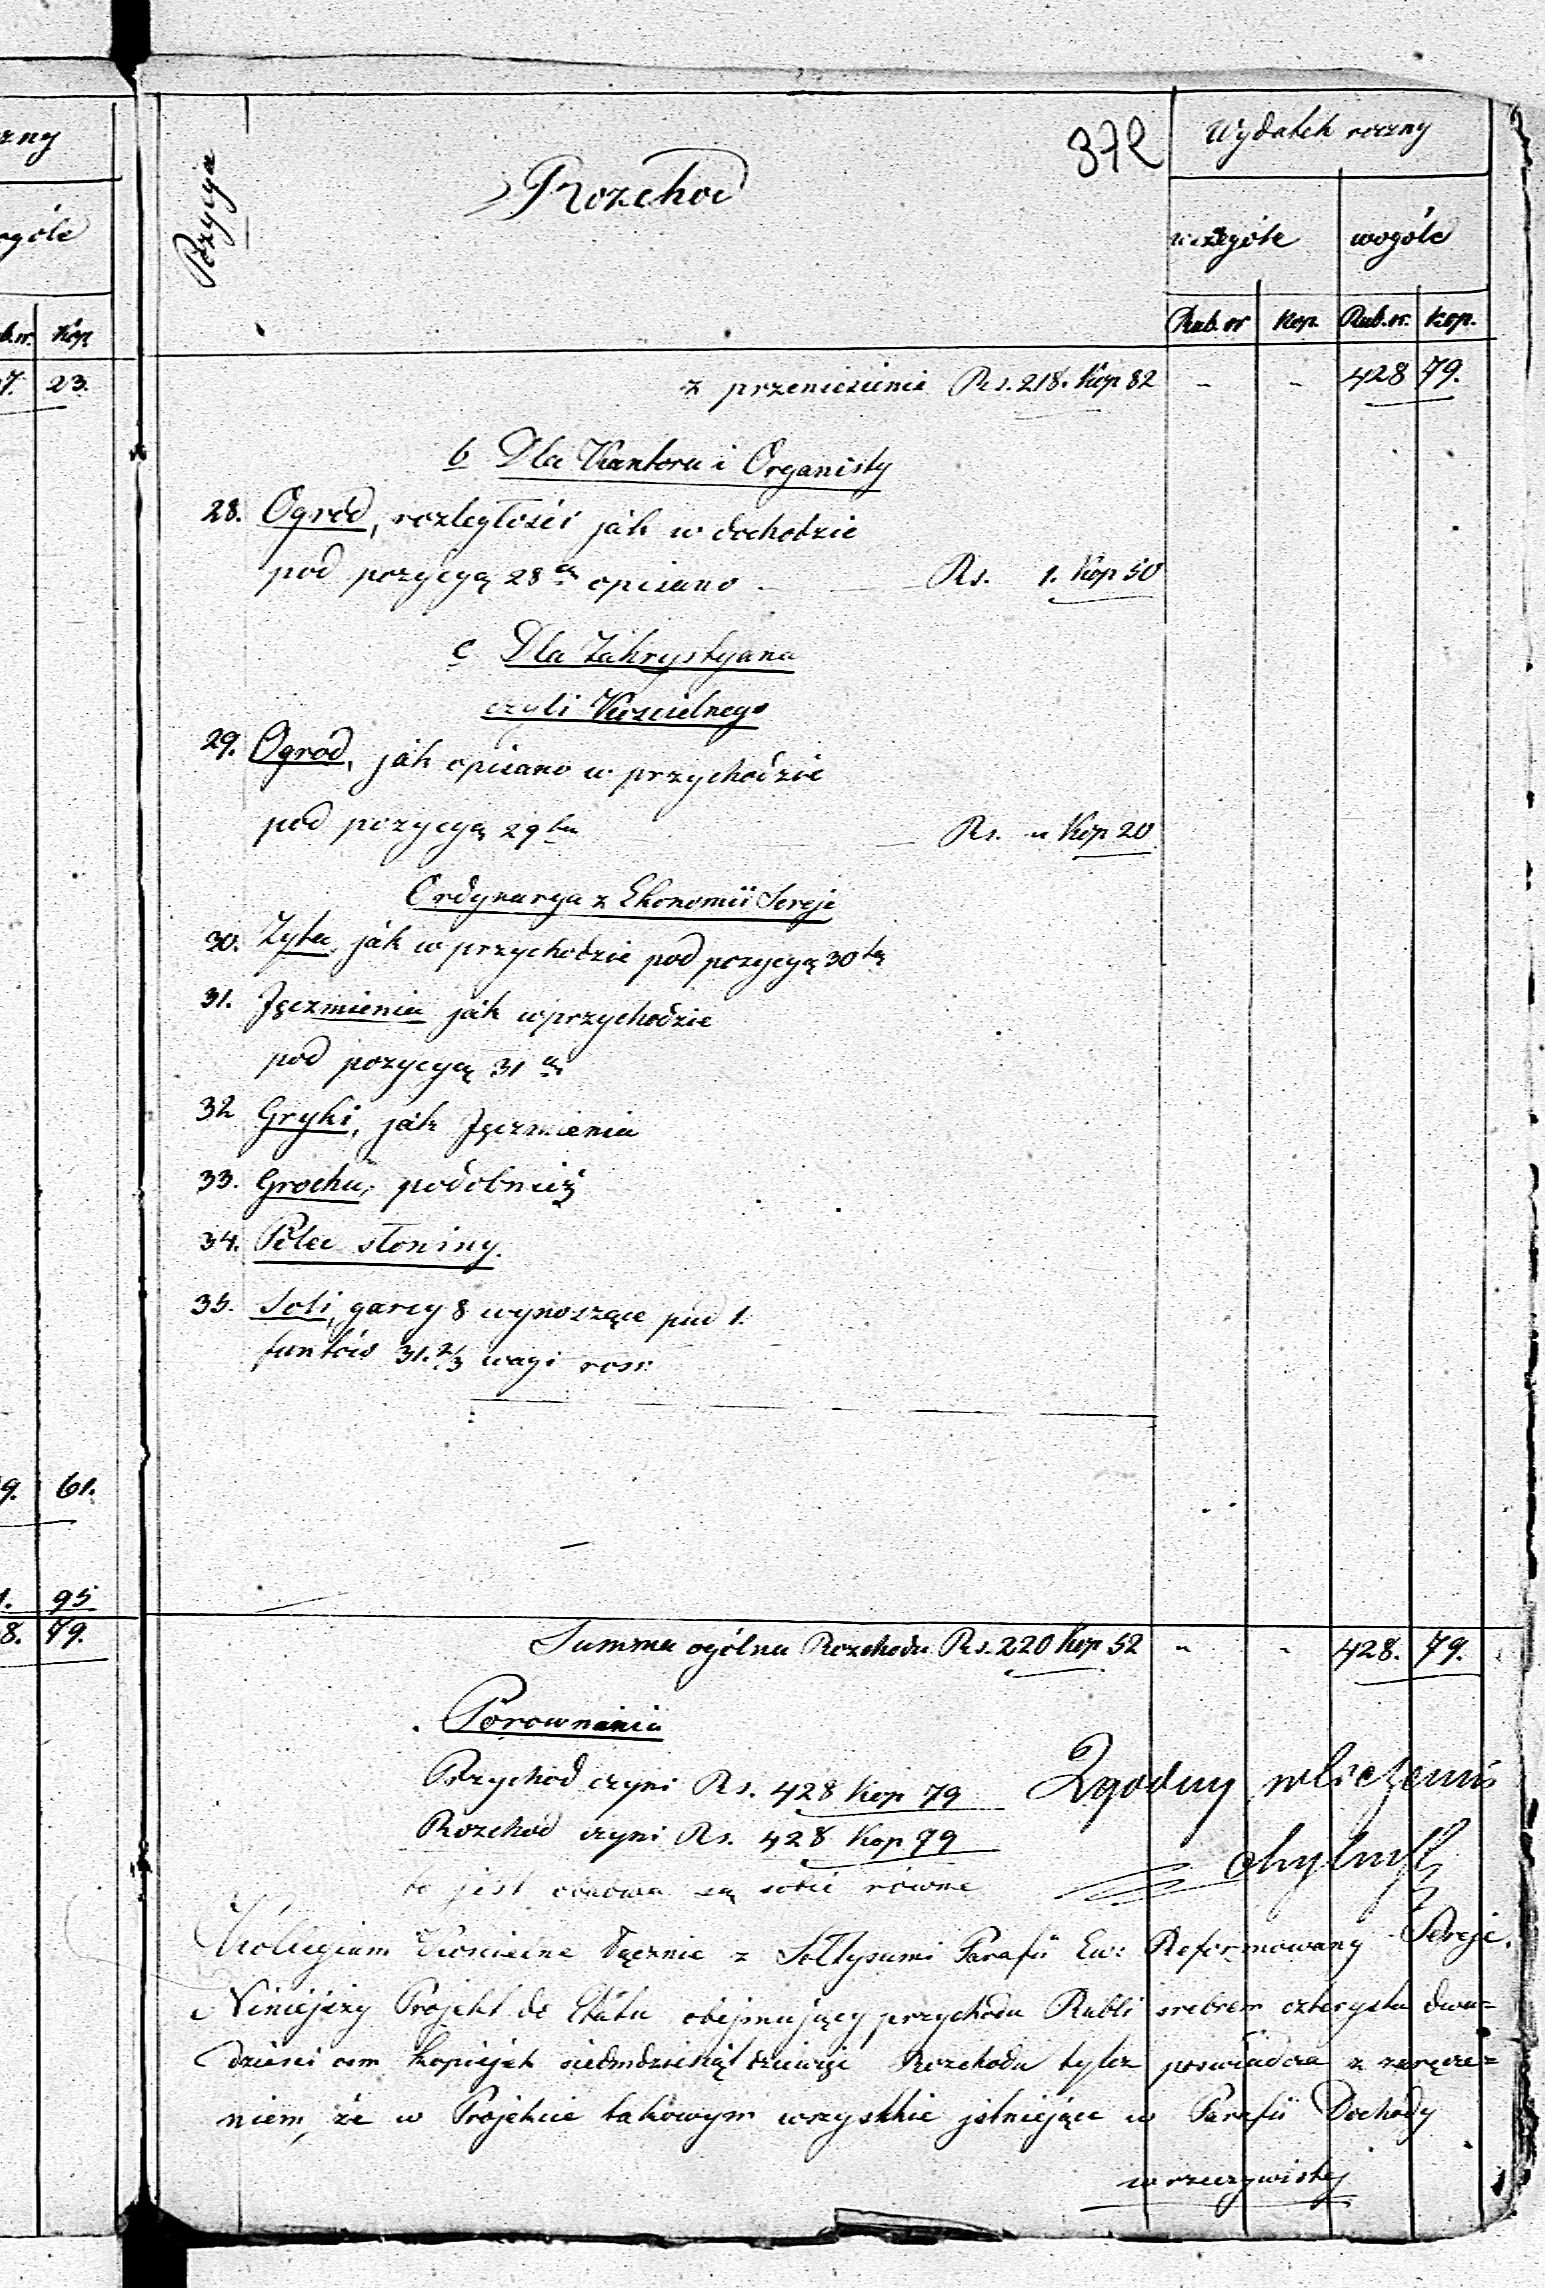 zny
ogóle
b.sr. Kop
7. 23.
9. 61.
1. 95
8. 79.
Pozycja
Rozchod
372
Wydatek roczny
wszczególe wogóle
Rub. sr Kop. Rub. sr. Kop.
z przeniesienia Rs. 218. Kop 82 - - 428 79.
b Dla Kantora i Organisty
28. Ogrod, rozległości jak w dochodzie
pod pozycyą 28ą opisano - Rs. 1. Kop 50
c Dla Zakrystyana
czyli Koscielnego
29. Ogrod, jak opisano w przychodzie
pod pozycyą 29tą Rs. " Kop 20
Ordynarya z Ekonomii Sereje
30. Zyta, jak w przychodzie pod pozycyą 30tą
31. Jęczmienia jak w przychodzie
pod pozycyą 31ą
32 Gryki, jak Jęczmienia
33. Grochu, podobnież
34. Połeć słoniny.
35. Soli, garcy 8 wynoszące pud 1.
funtów 31.2/3 wagi ross:
Summa ogólna Rozchodu Rs. 220 Kop 52 " " 428. 79.
Porownanie
Przychod czyni Rs. 428 Kop 79
Rozchod czyni Rs. 428 Kop 79
to jest obadwa są sobie równe
Zgodny w liczeniu
Kollegium Koscielne łącznie z Sołtysami Parafii Ew: Reformowany Sereje.
Niniejszy Projekt do Etatu obejmujący przychodu Rubli srebrem czterysta dwa=
dzieści osm Kopiejek siedmdziesiąt dziewięć Rozchodu tyleż poswiadcza z zaręcze=
niem, że w Projekcie takowym wszystkie jstniejące w Parafii Dochody
w rzeczywistej